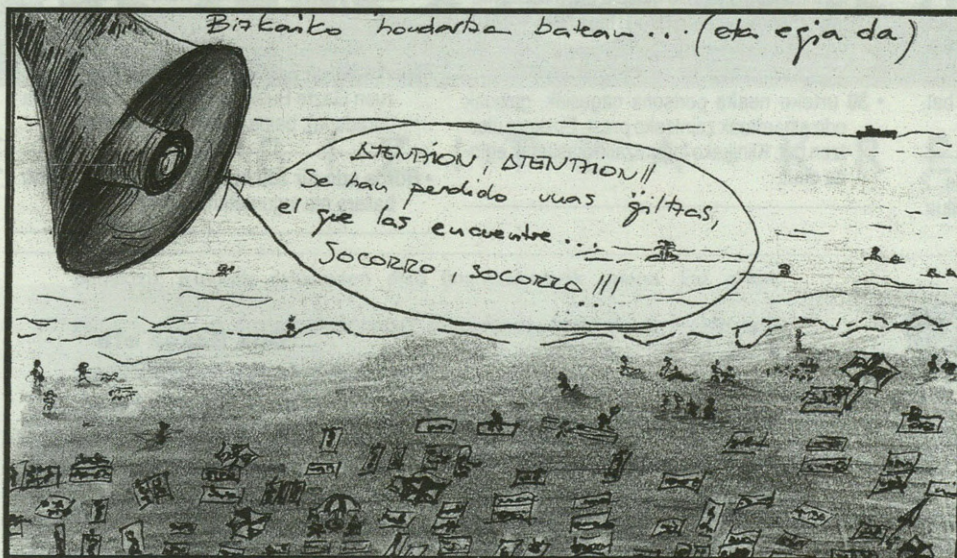 Bizkaiko hondartza batean... (eta egia da)
ATENTZION, ATENTZION!!
Se han perdido unas giltzas,
el que las encuentre...
SOCORRO, SOCORRO!!!